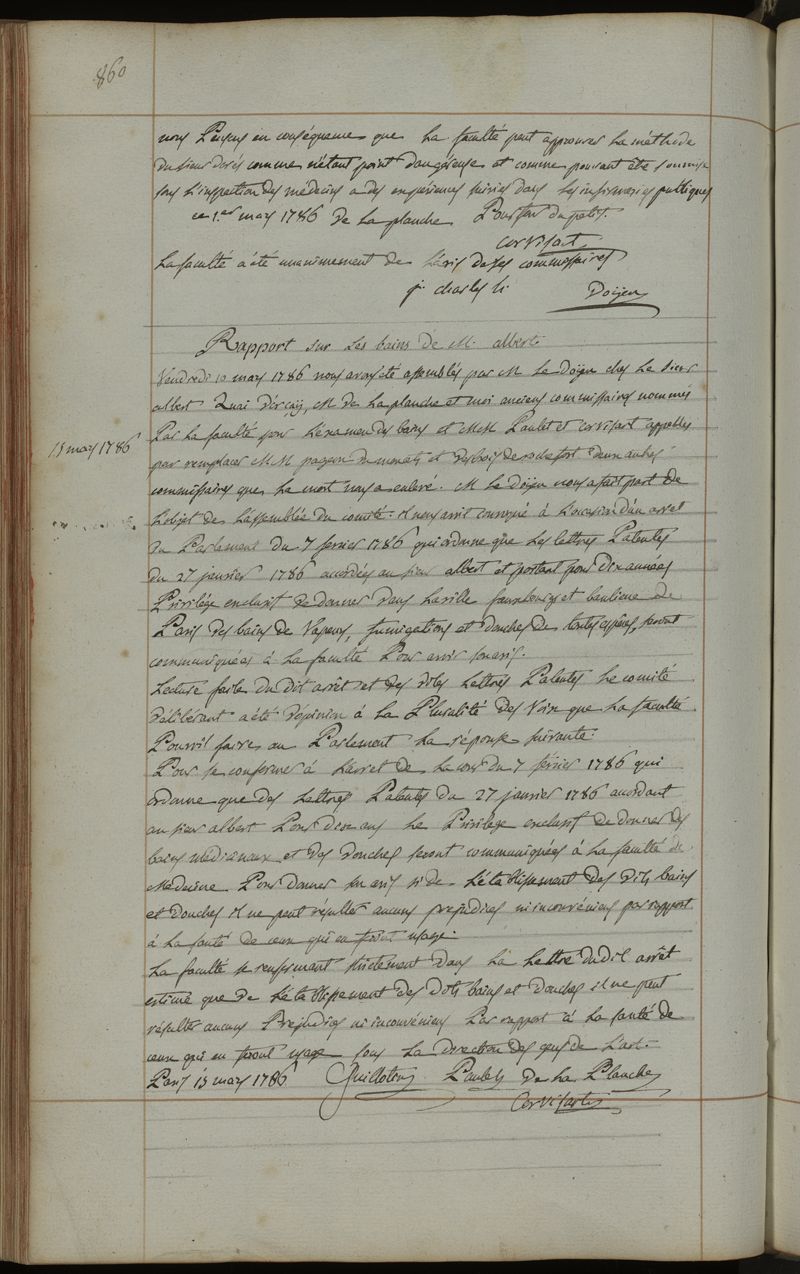 860
nous Pensons en conséquence que La faculté peut approuver La méthode
du sieur Dorés comme n'étant point dangéreuse et comme pouvant être soumise
sous L'inspection des médecins a des expériences suivies dans Les infirmeries publiques
ce 1.er mars 1786 De La planche Corvisart
La faculté a été unanimement de L'avis de ses commissaires
Doÿen
Rapport sur Les bains de M. albert
Vendredi 10 mars 1786 nous avons été assemblés par M Le Doÿen chez Le sieur
albert Quai d'orçay, M De La planche et moi anciens commissaires nommés
Par La faculté pour L'examen des bains et MM Paulet et Corvisart appellés
15 mars 1786
pour remplacer MM et de rochefort Deux autres
commissaires que La mort nous a enlevé. M Le Doÿen nous a fait part de
L'objet de L'assemblée du comité. il nous avoit convoqué à L'occasion d'un arret
Du Parlement Du 7 fevrier 1786 qui ordonne que Les lettres Patentes
du 27 janvier 1786 accordées au sieur albert et portant pour Dix années
Privilége exclusif de donner dans La ville fauxbourgs et banlieue De
Paris Des bains De Vapeurs, fumigations et Douches De toutes espéces, seront
communiquées à La faculté Pour avoir son avis.
Lecture faite Du dit arrêt et des dites Lettres Patentes Le comité
Délibérant a été d'opinion à La Pluralité Des Voix que La faculté
Pouvoit faire au Parlement La réponse suivante.
Pour se conformer à L'arret de La cour du 7 février 1786 qui
ordonne que des Lettres Patentes du 27 janvier 1786 accordant
au sieur albert Pour dix ans Le Privilége exclusif De donner Des
bains médicinaux et des Douches seront communiquées à La faculté de
Medecine Pour donner son avis si de L'établissement des dits bains
et Douches il ne peut résulter aucuns préjudices ni inconvéniens par rapport
à La santé de ceux qui en feront usage.
La faculté se renfermant strictement dans La Lettre dudit arrêt
estime que de L'établissement Des Dits bains et Douches il ne peut
résulter aucuns Préjudices ni inconvéniens Par rapport à La santé de
ceux qui en feront usage sous La Direction des gens de L'art.
Paris 15 mars 1786 Guillotin Paulet De La Planche
Corvisart